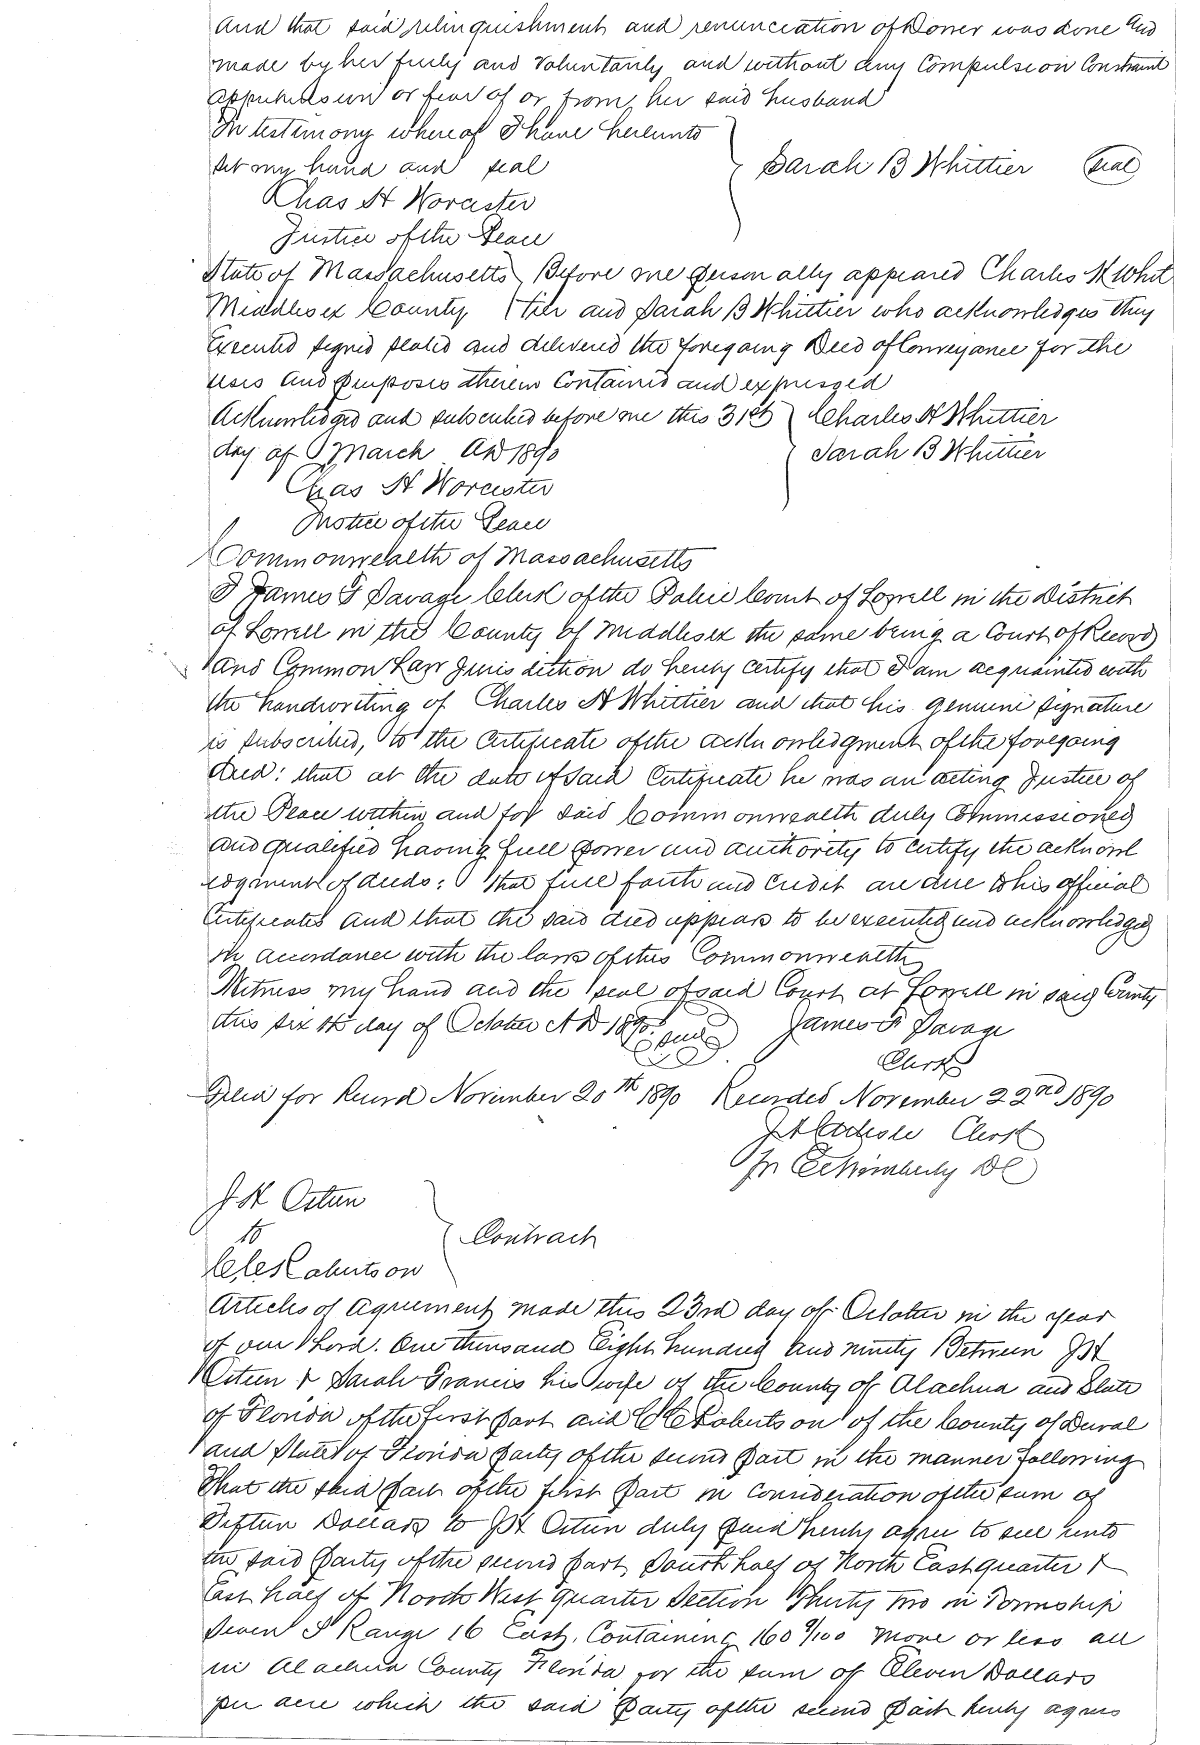 And that said relinquishment and renunciation of Dower was done and
made by her freely and Voluntarily and without any Compulsion Constraint
apprehension or fear of or from her said husband
In testimony whereof I have hereunto
set my hand and seal
Sarah B Whittier (seal)
Chas H Worcester
Justice of the Peace
State of Massachusetts Before me personally appeared Charles H Whit
Middlesex County tier and Sarah B Whittier who acknowledges they
Executed signed sealed and delivered the foregoing Deed of Conveyance for the
uses and purposes therein Contained and expressed
Acknowledged and subscribed before me this 31st
day of March AD 1890
Charles H Whittier
Sarah B Whittier
Chas H Worcester
Justice of the Peace
Commonwealth of Massachusetts
I James F Savage Clerk of the Police Court of Lowell in the District
of Lowell in the County of Middlesex the same being a Court of Record
and Common Law Jurisdiction do hereby certify that I am acquainted with
the handwriting of Charles H Whittier and that his genuine signature
is subscribed, to the Certificate of the acknowledgment of the foregoing
deed: that at the date of said Certificate he was an acting Justice of
the Peace within and for said Commonwealth duly Commissioned
and qualified having full power and authority to certify the acknowl
edgment of deeds: that full faith and credit are due to his official
Certificates and that the said deed appears to be executed and acknowledged
in accordance with the laws of this Commonwealth
Witness my hand and the seal of said Court at Lowell in said County
this sixth day of October AD 1890. (seal) James F Savage
Clerk
Filed for Record November 20th 1890 Recorded November 22nd 1890
Clerk
DC
J H Osteen
to
C C Robertson
Contract
Articles of Agreement made this 23rd day of October in the year
of our Lord. One thousand Eight hundred and ninety Between J H
Osteen & Sarah Francis his wife of the County of Alachua and State
of Florida of the first part and C C Robertson of the County of Duval
and State of Florida party of the second part in the manner following
That the said part of the first part in Consideration of the sum of
Fifteen Dollars to J H Osteen duly paid hereby agree to sell unto
the said party of the second part South half of North East quarter &
East half of North West quarter Section Thirty two in Township
Seven S Range 16 East, Containing 160 9/100 more or less all
in Alachua County Florida for the sum of Eleven Dollars
per acre which the said party of the second part hereby agrees